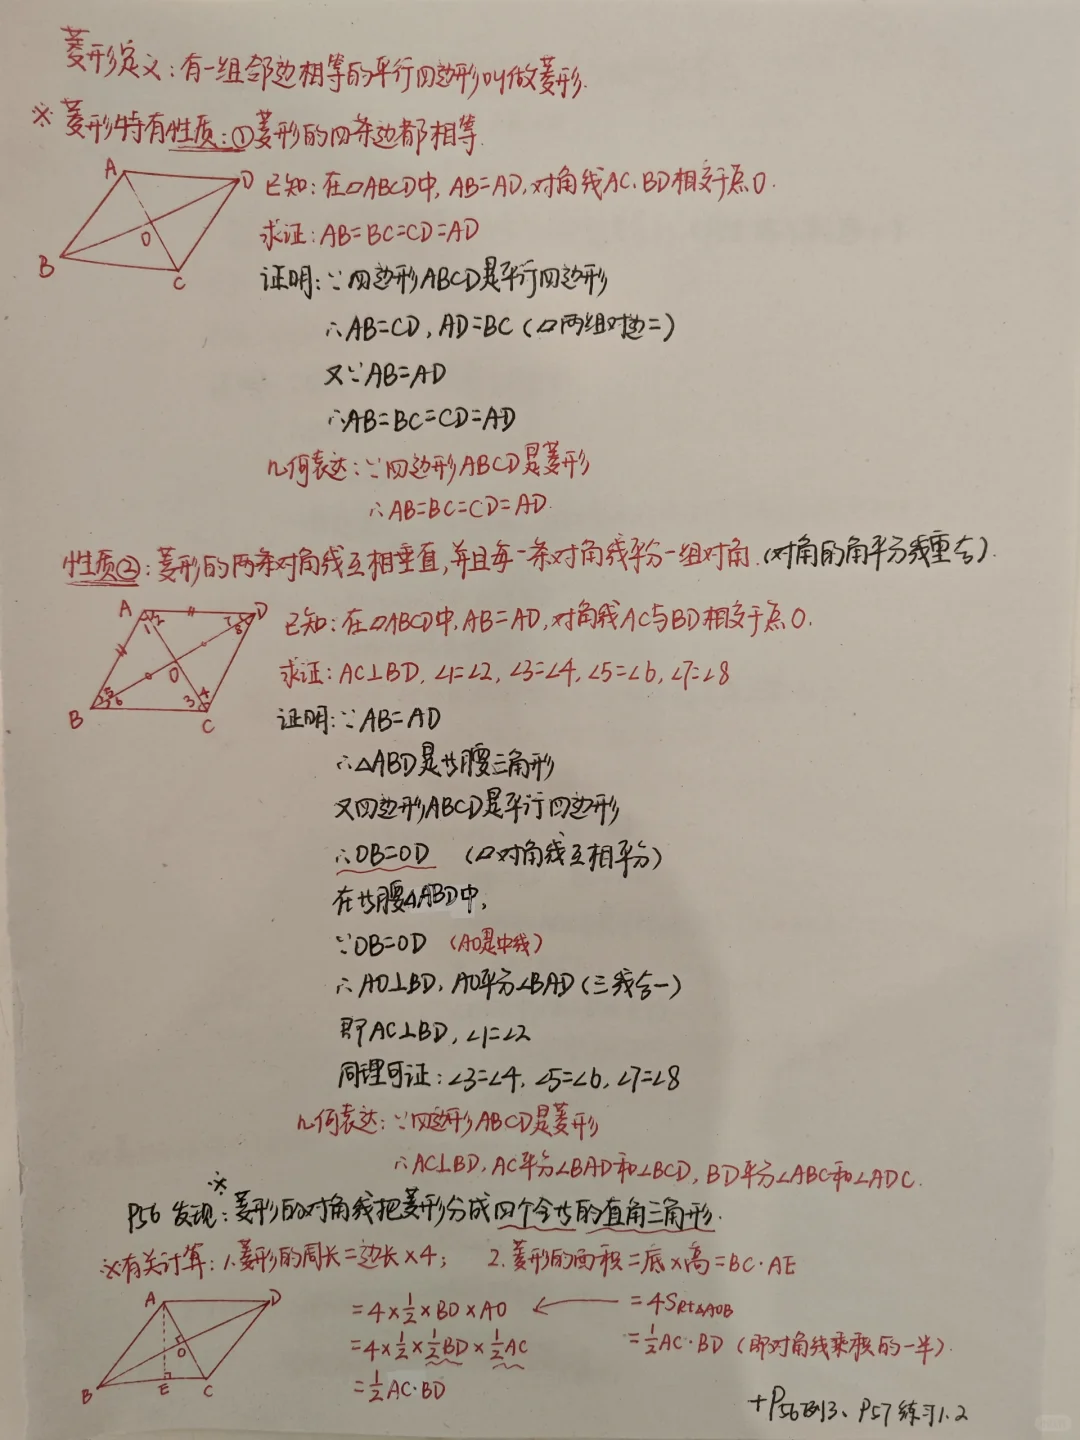 菱形定义:有一组邻边相等的平行四边形叫做菱形.
※菱形特有性质:①菱形的四条边都相等.
A
D
B
C
O
已知:在▱ABCD中, AB=AD,对角线AC、BD相交于点O.
求证:AB=BC=CD=AD
证明:∵四边形ABCD是平行四边形
∴AB=CD, AD=BC (▱两组对边=)
又∵AB=AD
∴AB=BC=CD=AD
几何表达:∵四边形ABCD是菱形
∴AB=BC=CD=AD.
性质②:菱形的两条对角线互相垂直,并且每一条对角线平分一组对角.(对角的角平分线重合).
A
D
B
C
O
1 2
7 8
5 6
3 4
已知:在▱ABCD中, AB=AD,对角线AC与BD相交于点O.
求证:AC⊥BD, ∠1=∠2, ∠3=∠4, ∠5=∠6, ∠7=∠8
证明:∵AB=AD
∴△ABD是等腰三角形
又四边形ABCD是平行四边形
∴OB=OD (▱对角线互相平分)
在等腰△ABD中,
∵OB=OD (AO是中线)
∴AO⊥BD, AO平分∠BAD(三线合一)
即AC⊥BD, ∠1=∠2
同理可证:∠3=∠4, ∠5=∠6, ∠7=∠8
几何表达:∵四边形ABCD是菱形
∴AC⊥BD, AC平分∠BAD和∠BCD, BD平分∠ABC和∠ADC.
※P56发现:菱形的对角线把菱形分成四个全等的直角三角形.
※有关计算:1.菱形的周长=边长×4; 2.菱形的面积=底×高=BC·AE
A
D
B
E
C
O
=4×½×BO×AO ← =4S Rt△AOB
=4×½×½BD×½AC =½AC·BD (即对角线乘积的一半).
=½AC·BD
+P56例3、P57练习1.2